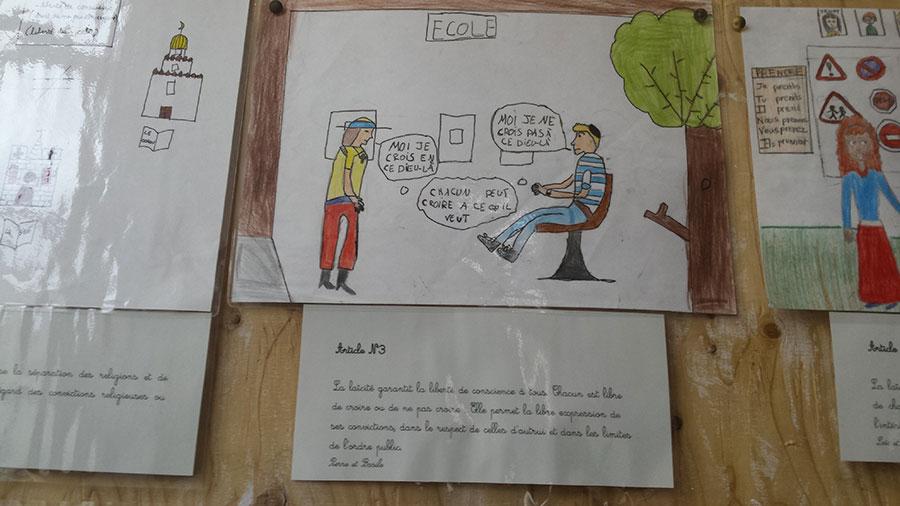 ECOLE
MOI JE
CROIS EN
CE DIEU-LÀ
MOI JE NE
CROIS PAS À
CE DIEU-LÀ
CHACUN PEUT
CROIRE A CE QU'IL
VEUT
PRENDRE
Je prends
Tu prends
Il prend
Nous prenons
Vous prenez
Ils prennent
la séparation des religions et de
égard des convictions religieuses ou
Article N°3
La laïcité garantit la liberté de conscience à tous. Chacun est libre
de croire ou de ne pas croire. Elle permet la libre expression de
ses convictions, dans le respect de celles d'autrui et dans les limites
de l'ordre public.
Pierre et Basile
Article
La laï
de cha
l'intéri